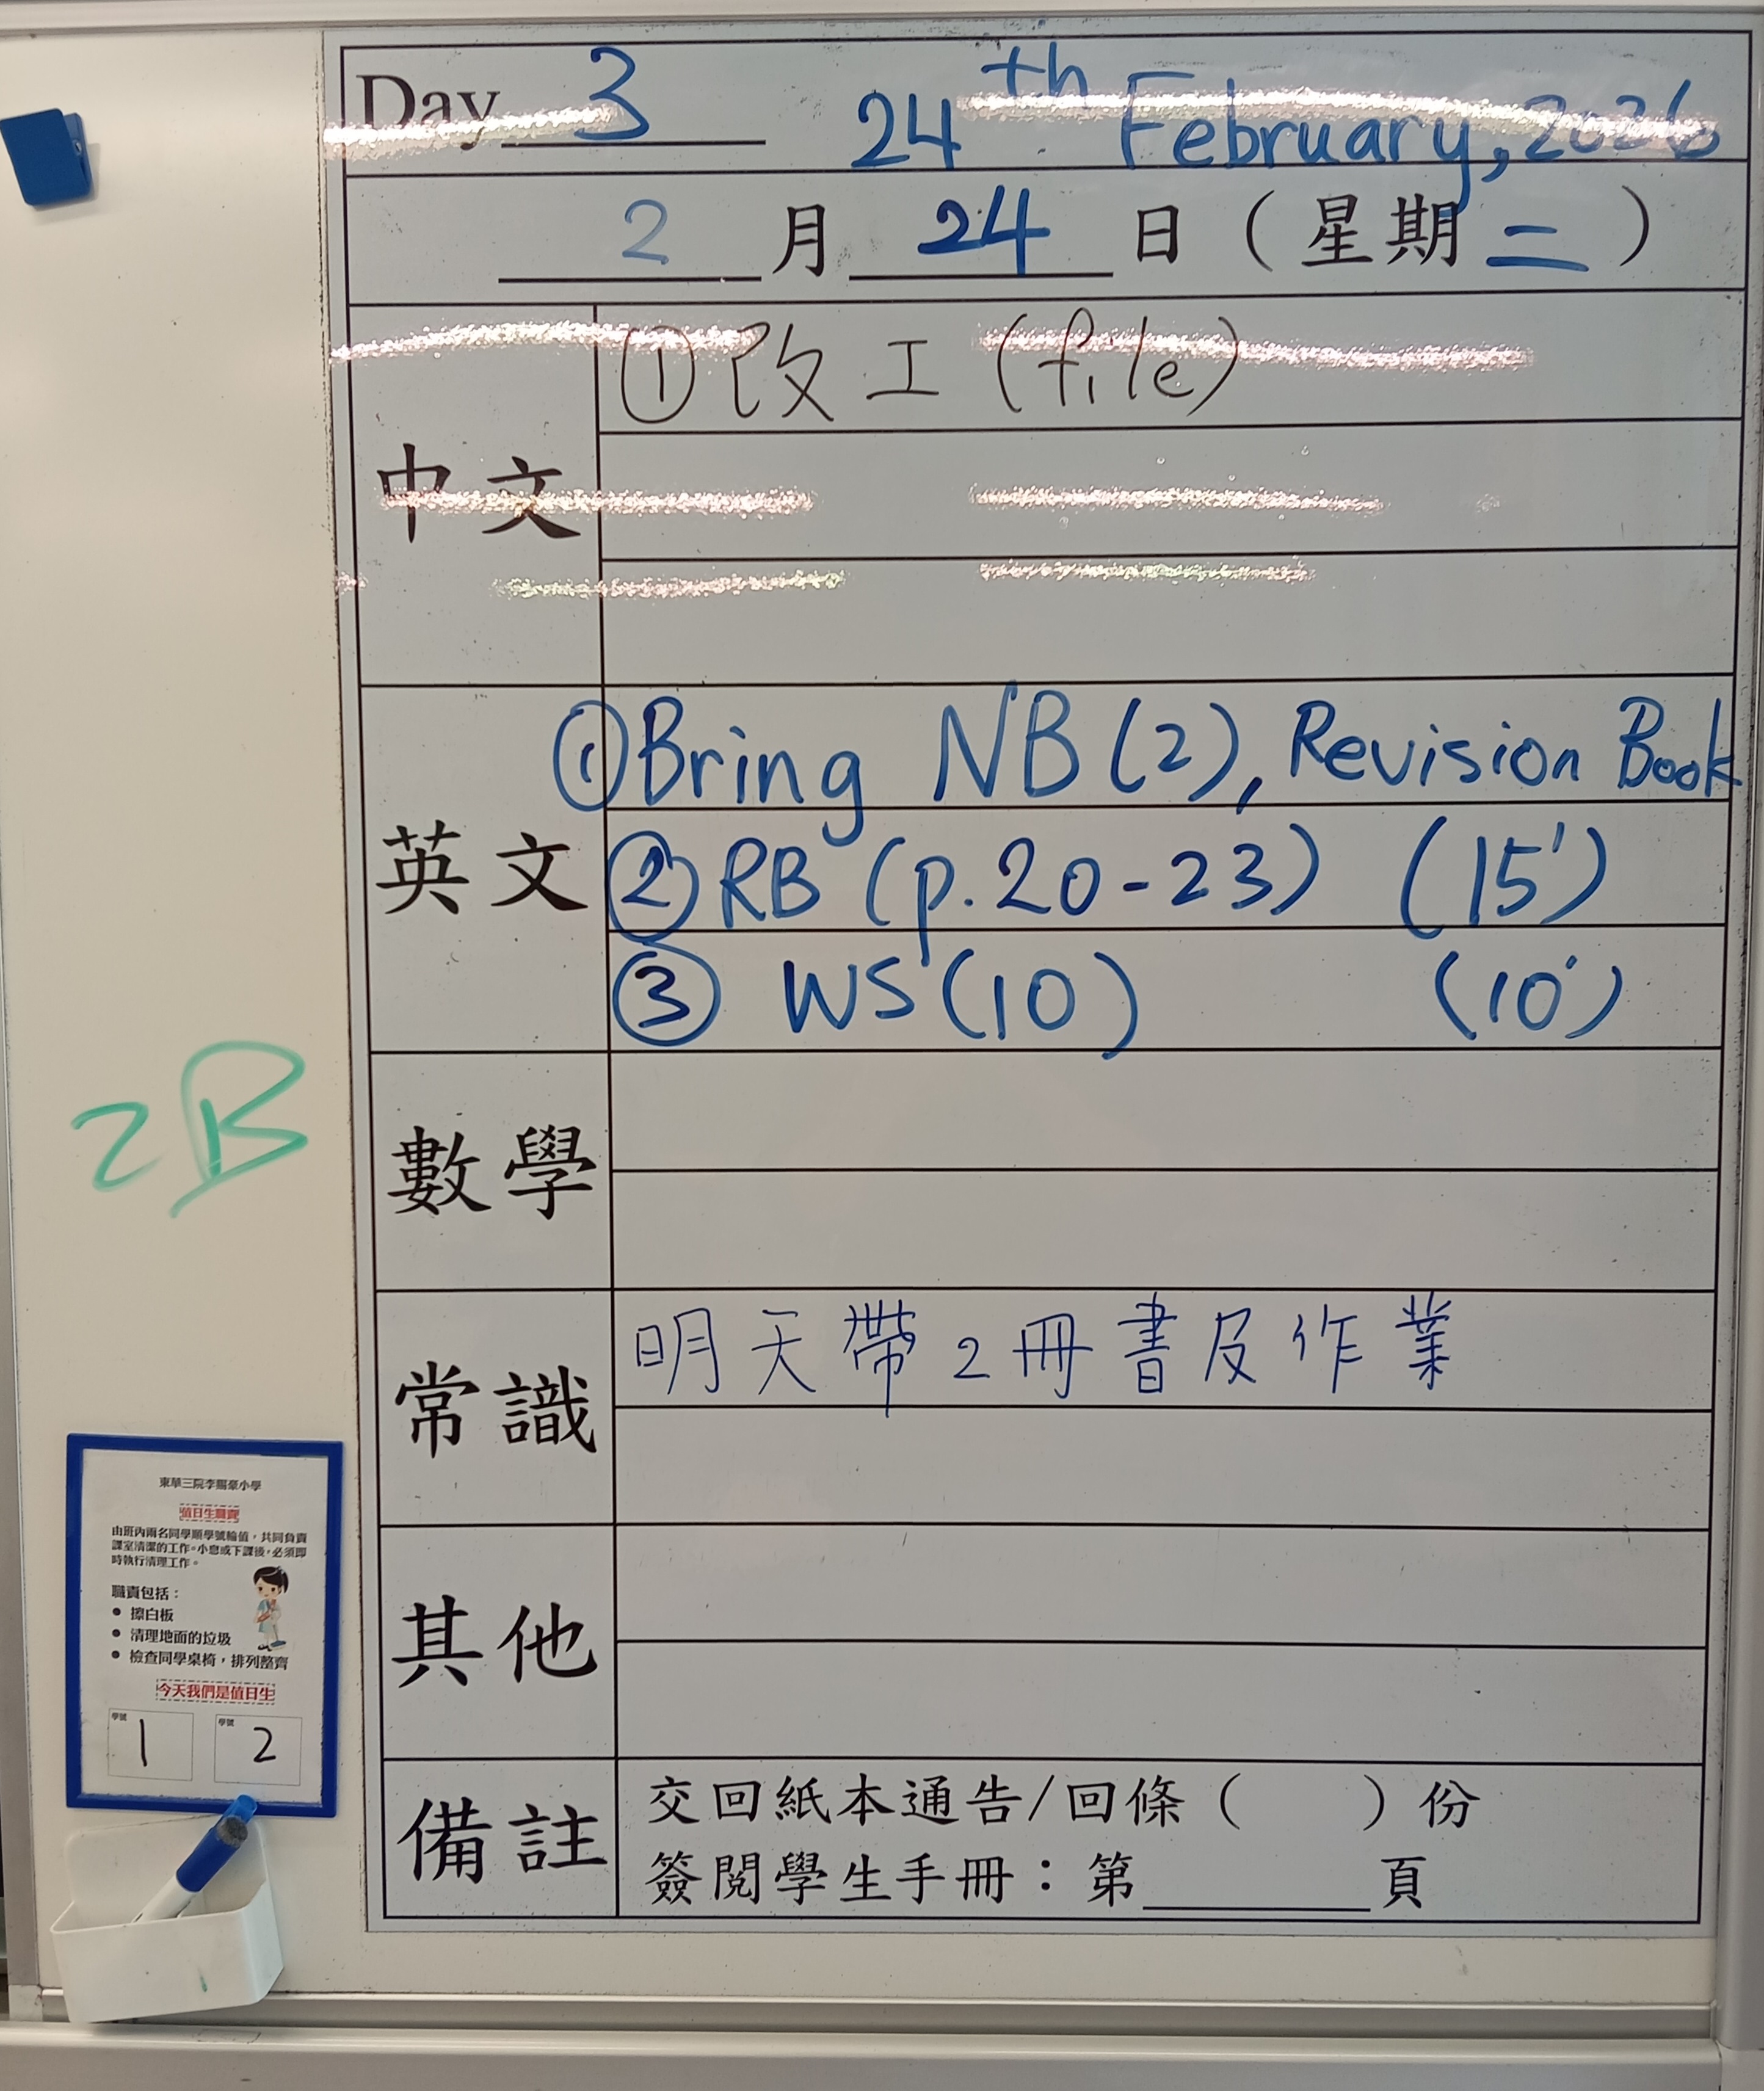 Day 3 24th February, 2026
2 月 24 日 ( 星期 二 )
中文
① 改工 (file)
英文
① Bring NB (2), Revision Book
② RB (p.20-23) (15')
③ WS (10) (10')
數學
2B
常識
明天帶2冊書及作業
其他
備註
交回紙本通告/回條 ( ) 份
簽閱學生手冊：第 頁
東華三院李賜豪小學
值日生職責
由班內兩名同學順學號輪值，共同負責
課室清潔的工作。小息或下課後，必須即
時執行清理工作。
職責包括：
• 擦白板
• 清理地面的垃圾
• 檢查同學桌椅，排列整齊
今天我們是值日生
學號 1 學號 2